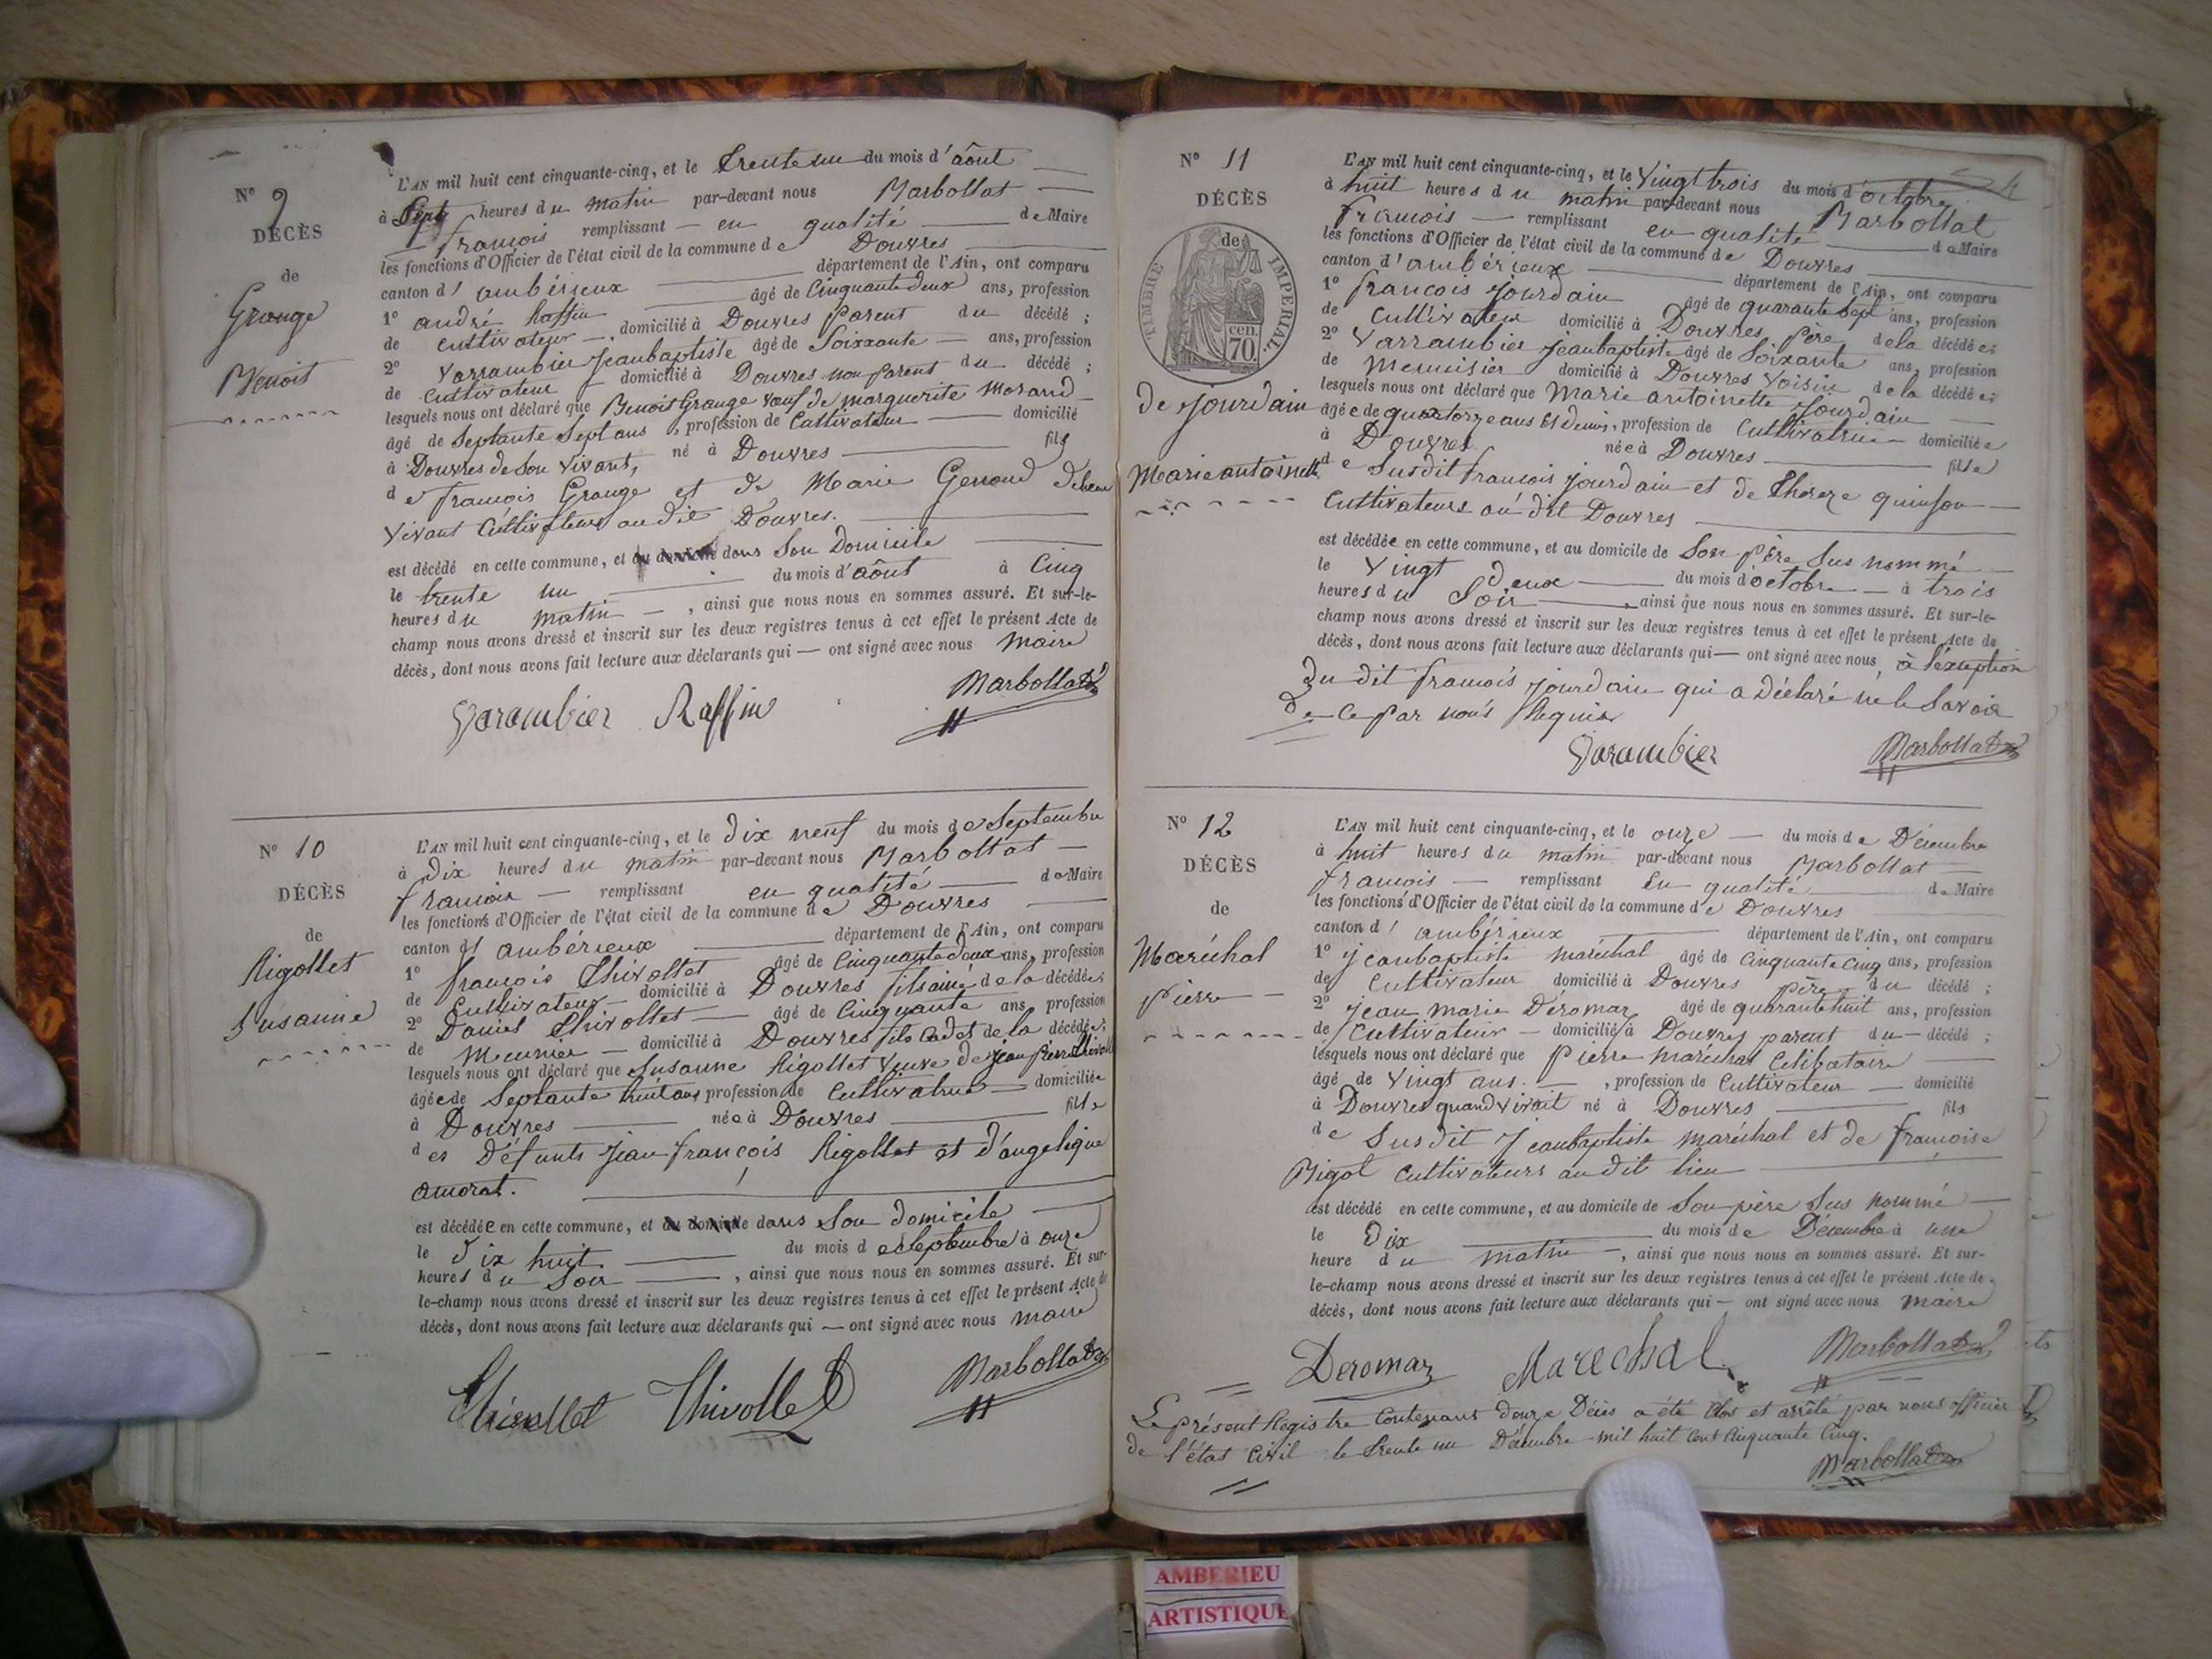 N° 9
DÉCÈS
de
Grange
Benoit
L'AN mil huit cent cinquante-cinq, et le trente un du mois d'août
à Sept heures du matin par-devant nous Marbollat
françois remplissant en qualité de Maire
les fonctions d'Officier de l'état civil de la commune de Douvres
canton d'ambérieux département de l'Ain, ont comparu
1° andré Raffin âgé de Cinquante deux ans, profession
de Cultivateur domicilié à Douvres parent du décédé ;
2° Varrambier Jeanbaptiste âgé de Soixxante ans, profession
de Cultivateur domicilié à Douvres non parent du décédé ;
lesquels nous ont déclaré que Benoit Grange veuf de marguerite Morand
âgé de Septante Sept ans, profession de Cultivateur domicilié
à Douvres de Son vivant, né à Douvres fils
de françois Grange et de Marie Genoud de leur
vivant Cultivateurs au dit Douvres.
est décédé en cette commune, et au domicile dans Son Domicile
le trente un du mois d'août à Cinq
heures du matin, ainsi que nous nous en sommes assuré. Et sur-le-
champ nous avons dressé et inscrit sur les deux registres tenus à cet effet le présent Acte de
décès, dont nous avons fait lecture aux déclarants qui — ont signé avec nous Maire
Varambier Raffin Marbollat
N° 10
DÉCÈS
de
Rigollet
Susanne
L'AN mil huit cent cinquante-cinq, et le dix neuf du mois de Septembre
à dix heures du matin par-devant nous Marbollat
françois remplissant en qualité de Maire
les fonctions d'Officier de l'état civil de la commune de Douvres
canton d'ambérieux département de l'Ain, ont comparu
1° françois Thivollet âgé de Cinquante deux ans, profession
de Cultivateur domicilié à Douvres fils ainé de la décédée ;
2° Daniel Thivollet âgé de Cinquante ans, profession
de Meunier domicilié à Douvres fils Cadet de la décédée ;
lesquels nous ont déclaré que Susanne Rigollet Veuve de Jean pierre Thivollet
âgée de Septante huit ans, profession de Cultivatrice domiciliée
à Douvres née à Douvres fille
des Défunts Jean françois Rigollet et d'angelique
amorat.
est décédée en cette commune, et au domicile dans Son domicile
le dix huit du mois de Septembre à onze
heures du Soir, ainsi que nous nous en sommes assuré. Et sur-
le-champ nous avons dressé et inscrit sur les deux registres tenus à cet effet le présent Acte de
décès, dont nous avons fait lecture aux déclarants qui — ont signé avec nous maire
Thivollet Thivollet Marbollat
N° 11
DÉCÈS
de
TIMBRE IMPERIAL.
cen.
70.
de Jourdain
Marie antoinette
L'AN mil huit cent cinquante-cinq, et le Vingt trois du mois d'octobre
à huit heures du matin par-devant nous Marbollat
françois remplissant en qualité de Maire
les fonctions d'Officier de l'état civil de la commune de Douvres
canton d'ambérieux département de l'Ain, ont comparu
1° françois Jourdain âgé de quarante Sept ans, profession
de Cultivateur domicilié à Douvres Père de la décédée ;
2° Varrambier Jeanbaptiste âgé de Soixante ans, profession
de Menuisier domicilié à Douvres Voisin de la décédée ;
lesquels nous ont déclaré que Marie antoinette Jourdain
âgée de quatorze ans et demi, profession de Cultivatrice domiciliée
à Douvres née à Douvres fille
de Susdit françois Jourdain et de Thérèze quinson
Cultivateurs au dit Douvres
est décédée en cette commune, et au domicile de Son père Sus nommé
le Vingt deux du mois d'octobre à trois
heures du Soir, ainsi que nous nous en sommes assuré. Et sur-le-
champ nous avons dressé et inscrit sur les deux registres tenus à cet effet le présent Acte de
décès, dont nous avons fait lecture aux déclarants qui — ont signé avec nous, à l'exception
du dit françois Jourdain qui a déclaré ne le Savoir
de ce par nous Requis
Varambier Marbollat
N° 12
DÉCÈS
de
Maréchal
pierre
L'AN mil huit cent cinquante-cinq, et le onze du mois de Décembre
à huit heures du matin par-devant nous Marbollat
françois remplissant en qualité de Maire
les fonctions d'Officier de l'état civil de la commune de Douvres
canton d'ambérieux département de l'Ain, ont comparu
1° Jeanbaptiste maréchal âgé de Cinquante Cinq ans, profession
de Cultivateur domicilié à Douvres père du décédé ;
2° Jean marie Déromas âgé de quarante huit ans, profession
de Cultivateur domicilié à Douvres parent du décédé ;
lesquels nous ont déclaré que Pierre maréchal Célibataire
âgé de Vingt ans, profession de Cultivateur domicilié
à Douvres quand vivait né à Douvres fils
de Susdit Jeanbaptiste maréchal et de françoise
Bigot Cultivateurs au dit lieu
est décédé en cette commune, et au domicile de Son père Sus nommé
le Dix du mois de Décembre à une
heure du matin, ainsi que nous nous en sommes assuré. Et sur-
le-champ nous avons dressé et inscrit sur les deux registres tenus à cet effet le présent Acte de
décès, dont nous avons fait lecture aux déclarants qui — ont signé avec nous maire
Deromas Marechal Marbollat
Le présent Registre Contenant Douze Décès a été Clos et arrêté par nous officier
de l'état Civil le trente un Décembre mil huit Cent Cinquante Cinq.
Marbollat
AMBERIEU
ARTISTIQUE